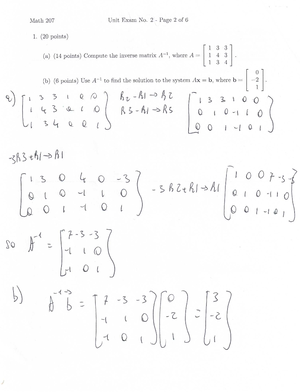 Math 207 Unit Exam No. 2 - Page 2 of 6
1. (20 points)
(a) (14 points) Compute the inverse matrix A⁻¹, where A = [1 3 3; 1 4 3; 1 3 4]
(b) (6 points) Use A⁻¹ to find the solution to the system Ax = b, where b = [0; -2; 1]
a) [1 3 3 1 0 0; 1 4 3 0 1 0; 1 3 4 0 0 1] R2-R1→R2 R3-R1→R3 [1 3 3 1 0 0; 0 1 0 -1 1 0; 0 0 1 -1 0 1]
-3R3+R1→R1
[1 3 0 4 0 -3; 0 1 0 -1 1 0; 0 0 1 -1 0 1] -3R2+R1→R1 [1 0 0 7 -3 -3; 0 1 0 -1 1 0; 0 0 1 -1 0 1]
so A⁻¹ = [7 -3 -3; -1 1 0; -1 0 1]
b) A⁻¹b = [7 -3 -3; -1 1 0; -1 0 1] [0; -2; 1] = [3; -2; 1]